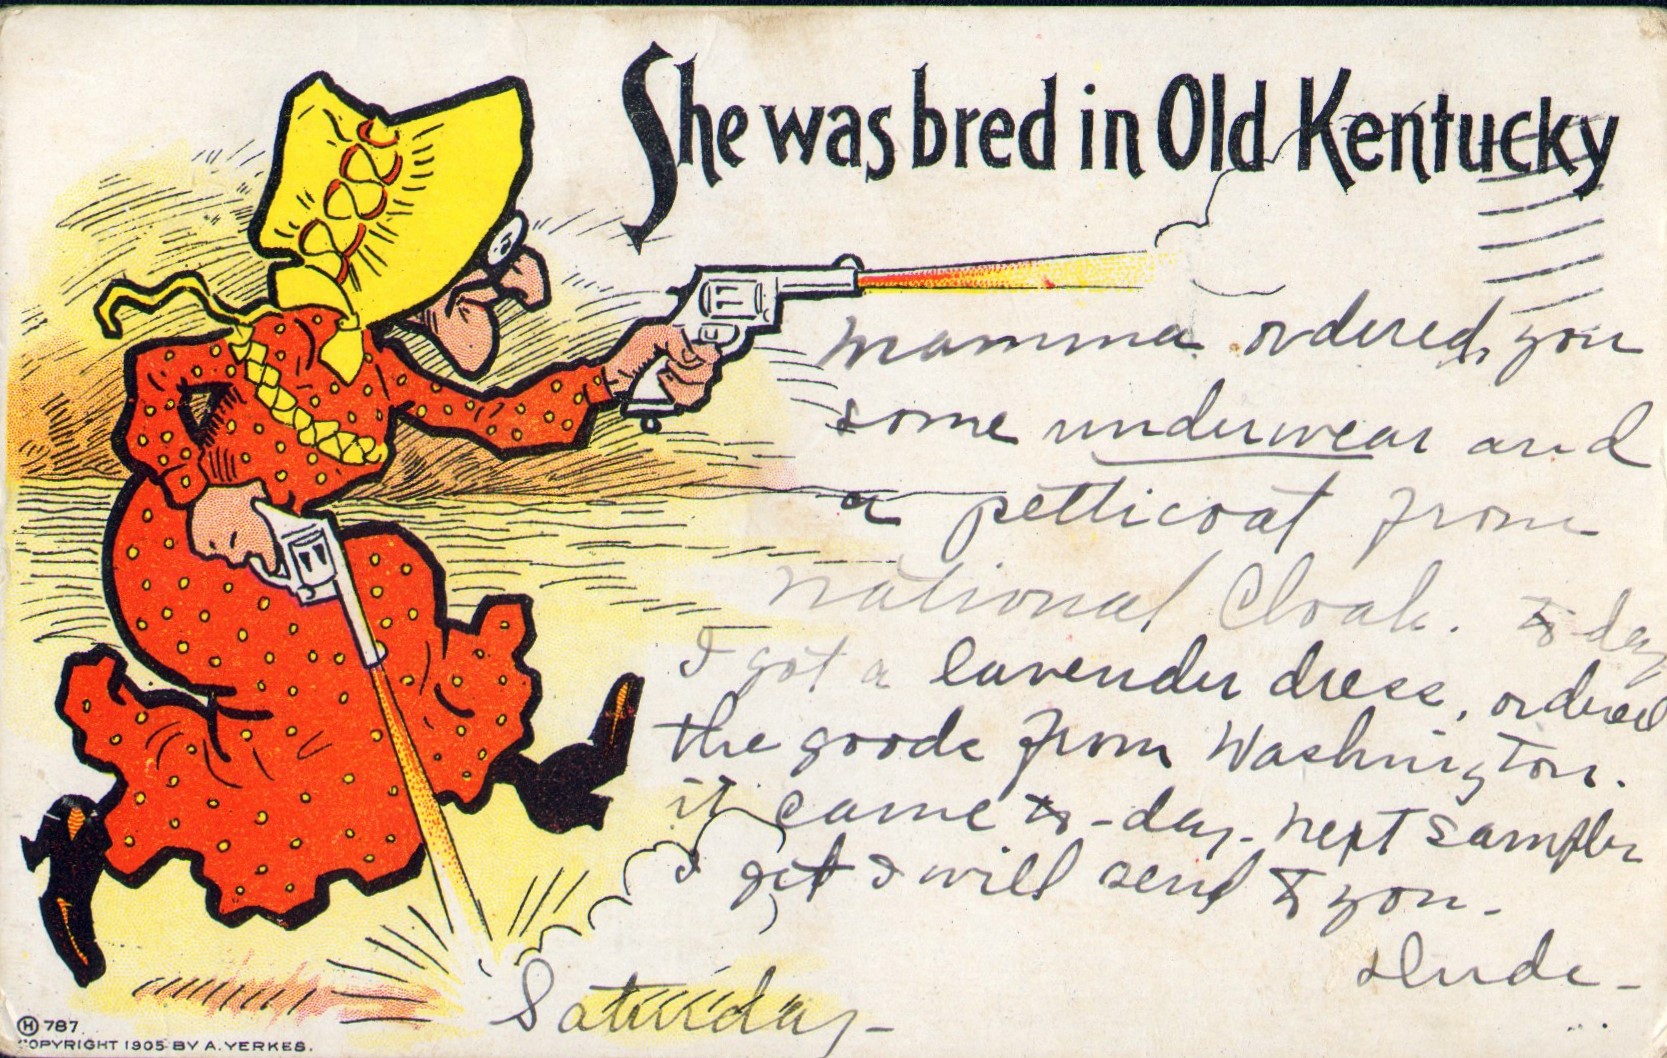 She was bred in Old Kentucky
mamma ordered you
some underwear and
a petticoat from
national Cloak. to-day
I got a lavender dress, ordered
the goods from Washington.
it came to-day. next samples
I get I will send to you.
Dude -
Saturday -
H 787
COPYRIGHT 1905 BY A. YERKES.